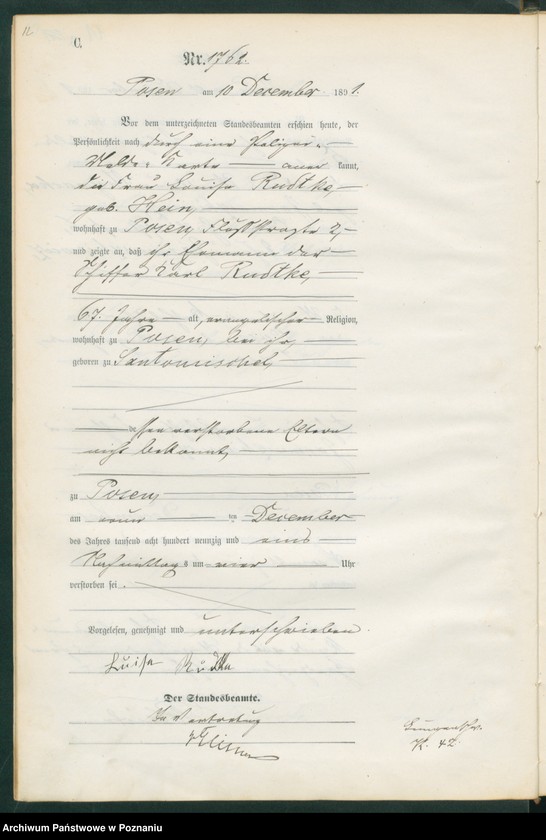 C.
Nr. 1762.
Posen am 10 December 1891.
Vor dem unterzeichneten Standesbeamten erschien heute, der
Persönlichkeit nach durch eine Polizei-
Melde-Karte aner kannt,
die Frau Louise Rudtke,
geb. Hein,
wohnhaft zu Posen Flußstraße 2,
und zeigte an, daß ihr Ehemann der
Schiffer Karl Rudtke,
67 Jahre alt, evangelischer Religion,
wohnhaft zu Posen, bei ihr,
geboren zu Santomischel,
dessen verstorbene Eltern
nicht bekannt,
zu Posen,
am neun ten December
des Jahres tausend acht hundert neunzig und eins
Nachmittags um vier Uhr
verstorben sei.
Vorgelesen, genehmigt und unterschrieben.
Luise
Der Standesbeamte.
In Vertretung
K. 42.
Archiwum Państwowe w Poznaniu